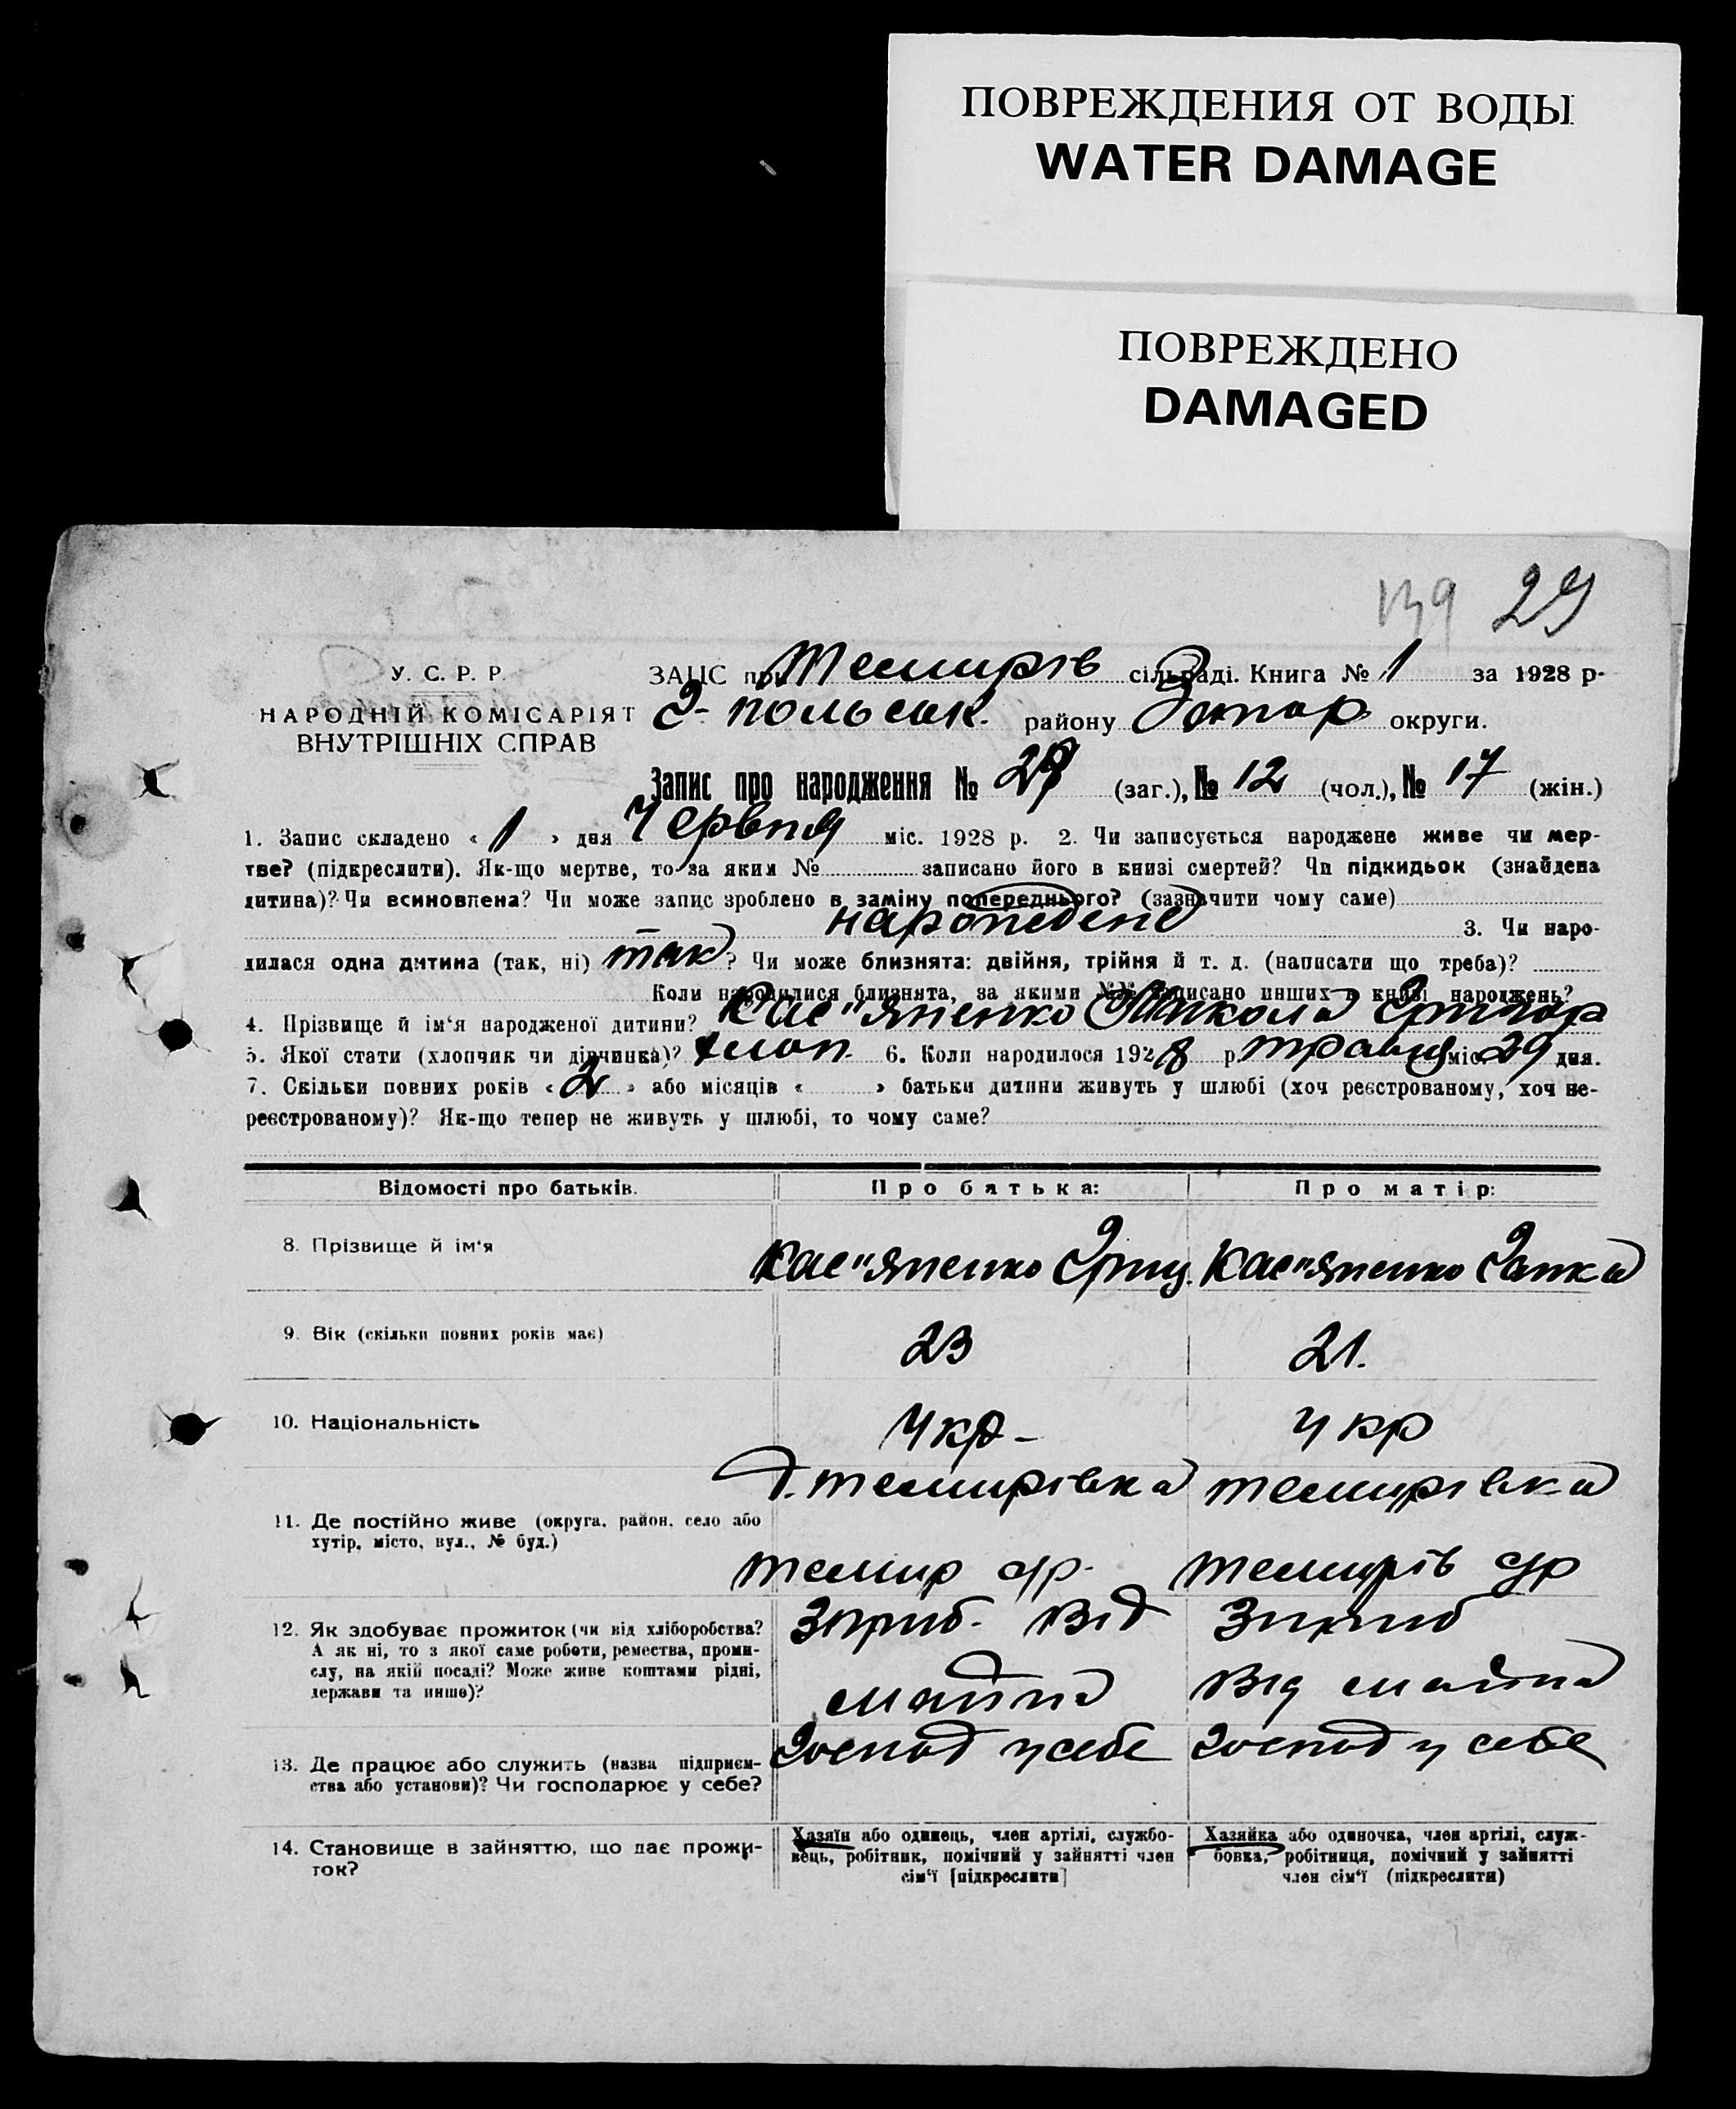 ПОВРЕЖДЕНИЯ ОТ ВОДЫ
WATER DAMAGE
ПОВРЕЖДЕНО
DAMAGED
139 29
У. С. Р. Р.
НАРОДНІЙ КОМІСАРІЯТ
ВНУТРІШНІХ СПРАВ
ЗАГС при Темирів сільраді. Книга № 1 за 1928 р.
Г-польськ. району Запор округи.
Запис про народження № 29 (заг.), № 12 (чол.), № 17 (жін.)
1. Запис складено « 1 » дня Червня міс. 1928 р. 2. Чи записується народжене живе чи мер-
тве? (підкреслити). Як-що мертве, то за яким № записано його в книзі смертей? Чи підкидьок (знайдена
дитина)? Чи всиновлена? Чи може запис зроблено в заміну попереднього? (зазначити чому саме)
народжене 3. Чи наро-
дилася одна дитина (так, ні) так? Чи може близнята: двійня, трійня й т. д. (написати що треба)?
Коли народилися близнята, за якими №№ записано инших в книзі народжень?
4. Прізвище й ім'я народженої дитини? Кас"яненко Микола Григор
5. Якої стати (хлопчик чи дівчинка)? хлоп. 6. Коли народилося 1928 р. травня міс. 29 дня.
7. Скільки повних років « 2 » або місяців « » батьки дитини живуть у шлюбі (хоч реєстрованому, хоч не-
реєстрованому)? Як-що тепер не живуть у шлюбі, то чому саме?
Відомості про батьків. Про батька: Про матір:
8. Прізвище й ім'я Кас"яненко Гриц. Кас"яненко Ганка
9. Вік (скільки повних років має) 23 21.
10. Національність Укр- Укр
д. Темирівка Темирівка
11. Де постійно живе (округа, район, село або
хутір, місто, вул., № буд.)
Темир с/р. Темирів с/р
12. Як здобуває прожиток (чи від хліборобства? Зприб. від Зприб
А як ні, то з якої саме роботи, ремества, проми-
слу, на якій посаді? Може живе коштами рідні,
держави та инше)? майна від майна
Господ у себе Господ у себе
13. Де працює або служить (назва підприєм-
ства або установи)? Чи господарює у себе?
14. Становище в зайняттю, що дає прожи-
ток?
Хазяїн або одинець, член артілі, службо-
вець, робітник, помічний у зайнятті член
сім'ї [підкреслити]
Хазяйка або одиночка, член артілі, служ-
бовка, робітниця, помічний у зайнятті
член сім'ї (підкреслити)